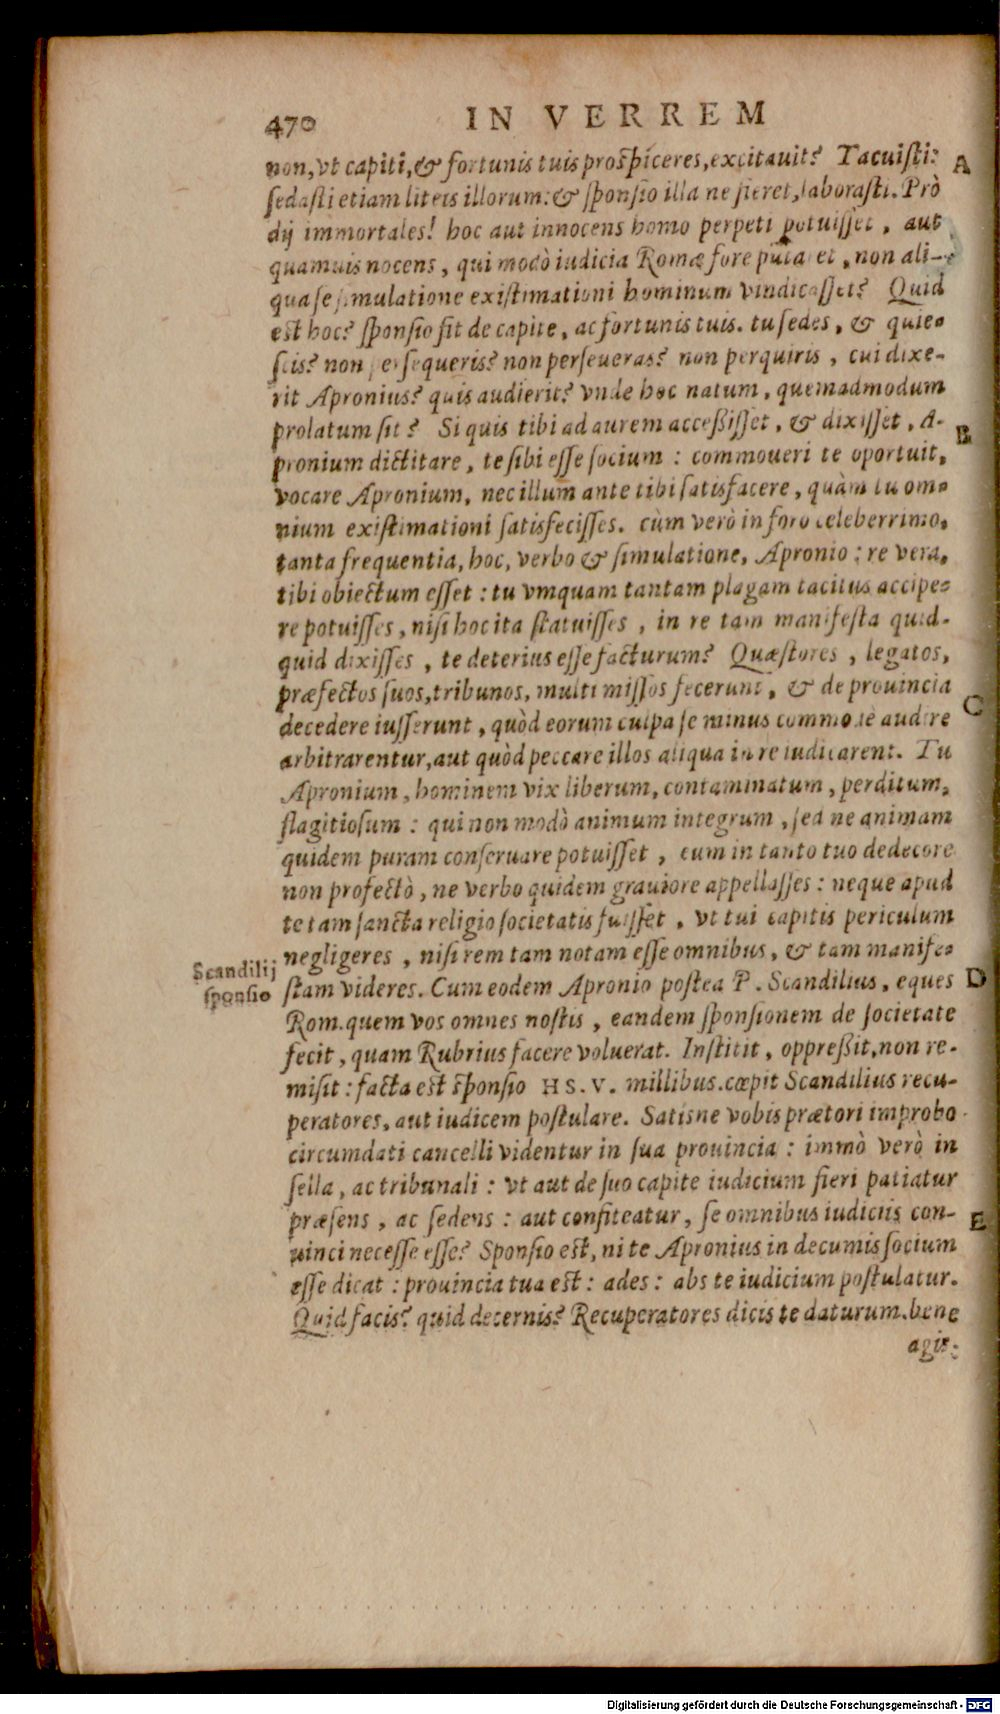 470 IN VERREM
non, vt capiti, & fortunis tuis prospiceres, excitauit? Tacuisti: A
sedasti etiam liteis illorum: & sponsio illa ne fieret, laborasti. Prò
dij immortales! hoc aut innocens homo perpeti potuisset, aut
quamuis nocens, qui modò iudicia Romæ fore putaret, non ali-
qua se simulatione existimationi hominum vindicasset? Quid
est hoc? sponsio fit de capite, ac fortunis tuis. tu sedes, & quie-
scis? non persequeris? non perseueras? non perquiris, cui dixe-
rit Apronius? quis audierit? vnde hoc natum, quemadmodum
prolatum sit? Si quis tibi ad aurem accessisset, & dixisset, A- B
pronium dictitare, te sibi esse socium: commoueri te oportuit,
vocare Apronium, nec illum ante tibi satisfacere, quàm tu om-
nium existimationi satisfecisses. cùm verò in foro celeberrimo,
tanta frequentia, hoc, verbo & simulatione, Apronio: re vera,
tibi obiectum esset: tu vmquam tantam plagam tacitus accipe-
re potuisses, nisi hoc ita statuisses, in re tam manifesta quid-
quid dixisses, te deterius esse facturum? Quæstores, legatos,
præfectos suos, tribunos, multi missos fecerunt, & de prouincia C
decedere iusserunt, quòd eorum culpa se minus commodè audire
arbitrarentur, aut quòd peccare illos aliqua in re iudicarent. Tu
Apronium, hominem vix liberum, contaminatum, perditum,
flagitiosum: qui non modò animum integrum, sed ne animam
quidem puram conseruare potuisset, eum in tanto tuo dedecore
non profectò, ne verbo quidem grauiore appellasses: neque apud
te tam sancta religio societatis fuisset, vt tui capitis periculum
negligeres, nisi rem tam notam esse omnibus, & tam manife-
Scandilij
sponsio
stam videres. Cum eodem Apronio postea P. Scandilius, eques D
Rom. quem vos omnes nostis, eandem sponsionem de societate
fecit, quam Rubrius facere voluerat. Institit, oppressit, non re-
misit: facta est sponsio HS. V. millibus. cœpit Scandilius recu-
peratores, aut iudicem postulare. Satisne vobis prætori improbo
circumdati cancelli videntur in sua prouincia: immò verò in
sella, ac tribunali: vt aut de suo capite iudicium fieri patiatur
præsens, ac sedens: aut confiteatur, se omnibus iudiciis con- E
uinci necesse esse? Sponsio est, ni te Apronius in decumis socium
esse dicat: prouincia tua est: ades: abs te iudicium postulatur.
Quid facis? quid decernis? Recuperatores dicis te daturum. bene
agis:
Digitalisierung gefördert durch die Deutsche Forschungsgemeinschaft - DFG